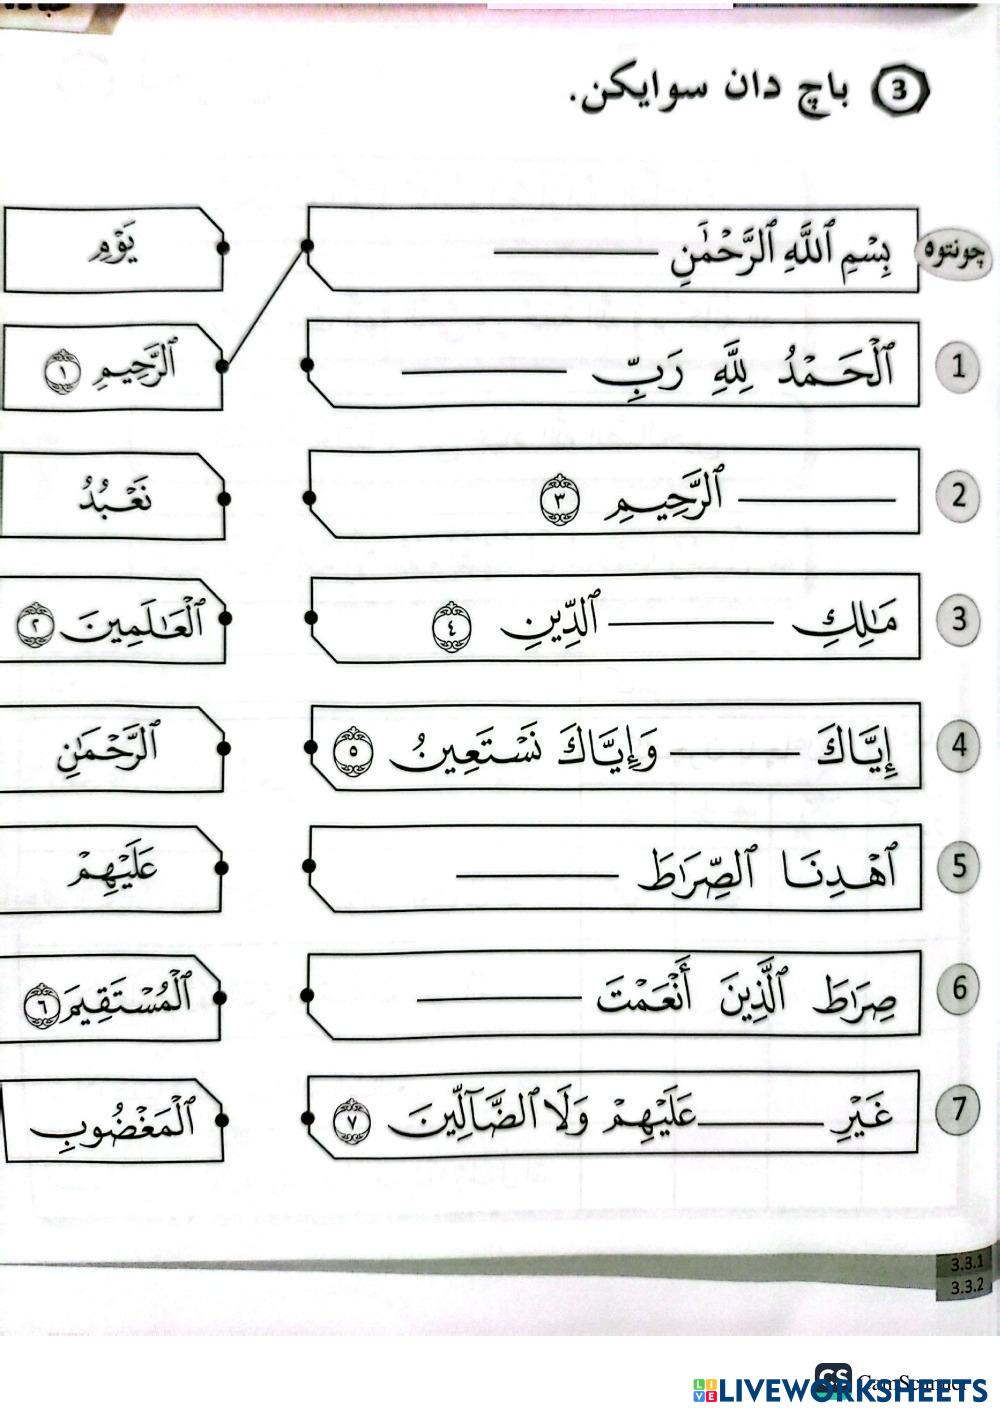 3 باچ دان سوايكن.
چونتوه بِسْمِ ٱللَّهِ ٱلرَّحْمَٰنِ ________ يَوْمِ
1 ٱلْحَمْدُ لِلَّهِ رَبِّ ________ ٱلرَّحِيمِ ١
2 ________ ٱلرَّحِيمِ ٣ نَعْبُدُ
3 مَٰلِكِ ________ ٱلدِّينِ ٤ ٱلْعَٰلَمِينَ ٢
4 إِيَّاكَ ________ وَإِيَّاكَ نَسْتَعِينُ ٥ ٱلرَّحْمَٰنِ
5 ٱهْدِنَا ٱلصِّرَٰطَ ________ عَلَيْهِمْ
6 صِرَٰطَ ٱلَّذِينَ أَنْعَمْتَ ________ ٱلْمُسْتَقِيمَ ٦
7 غَيْرِ ________ عَلَيْهِمْ وَلَا ٱلضَّآلِّينَ ٧ ٱلْمَغْضُوبِ
3.3.1
3.3.2
CS CamScanner
LIVE LIVEWORKSHEETS